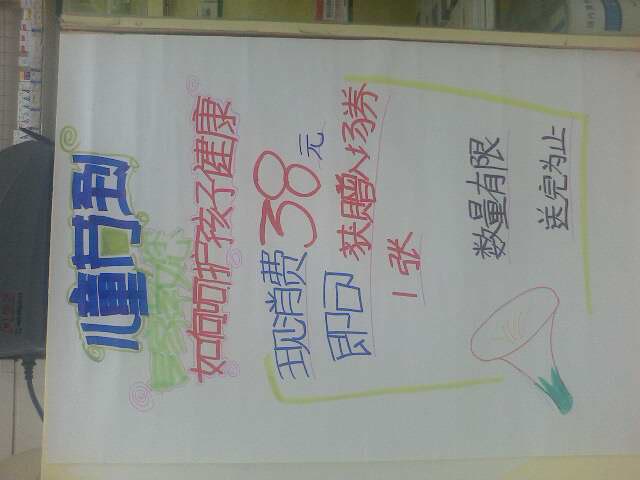 儿童节到
如何呵护孩子健康
现消费38元
即可获赠入场券
1张
数量有限
送完为止